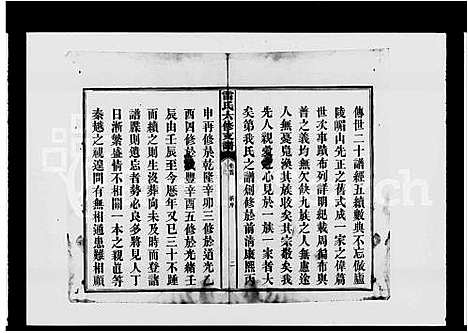 傳世二十譜經五續數典不忘倣廬
陵嵋山先正之舊式成一家之偉篇
世次事蹟布列詳明紀載周徧布與
普之義均無欠缺九族之人無慮途
人無憂見渙其族收矣其宗敬矣我
先人親愛心見於一族一家者大
矣第我氏之譜創修於前清康熙丙
雷氏六修支譜
卷首
二
申再修於乾隆辛卯三修於道光乙
酉四修於咸豐辛酉五修於光緒壬
辰由壬辰至今歷年又已三十不踵
而續之則生沒葬向未及時而登於
譜牒則遺忘者勢必良多將見人丁
日漸繁盛情不相關一本之親直等
秦越之視遠問有無相通患難相顧